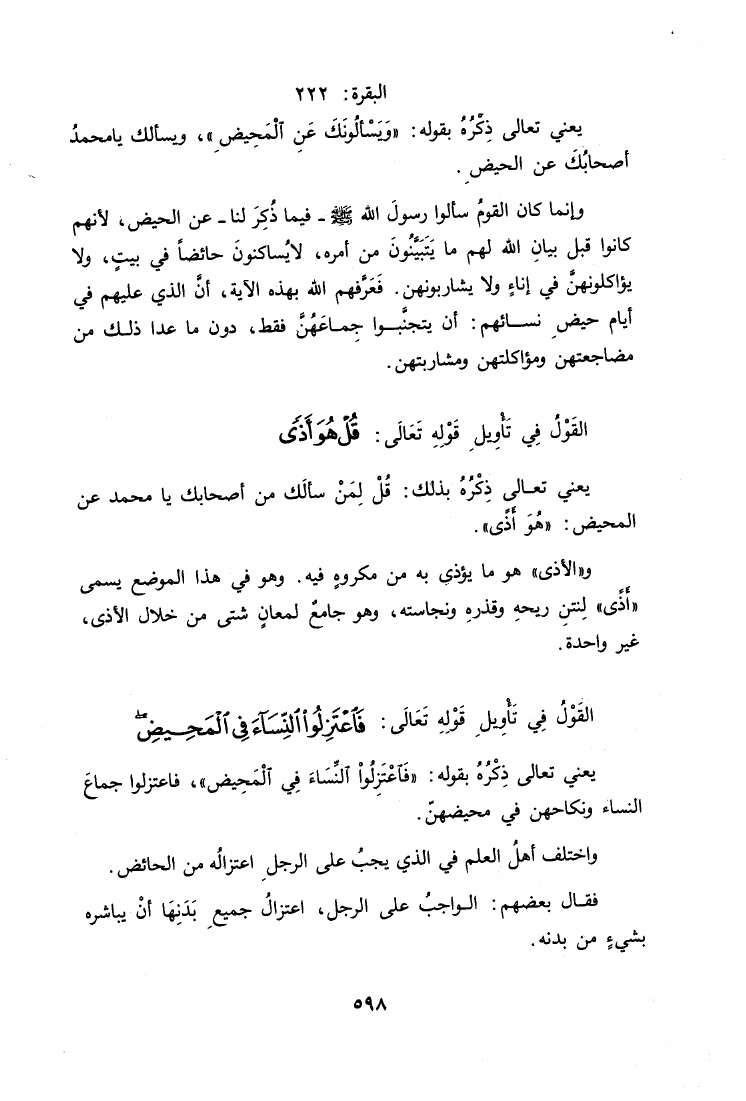 البقرة: ٢٢٢
يعني تعالى ذِكْرُهُ بقوله: «وَيَسْأَلُونَكَ عَنِ ٱلْمَحِيضِ»، ويسألك يامحمدُ
أصحابُكَ عن الحيضِ.
وإنما كان القومُ سألوا رسولَ الله ﷺ ـ فيما ذُكِرَ لنا ـ عن الحيض، لأنهم
كانوا قبل بيانِ الله لهم ما يَتَبَيَّنُونَ من أمره، لايُساكنونَ حائضاً في بيتٍ، ولا
يؤاكلونهنَّ في إناءٍ ولا يشاربونهن. فَعَرَّفهم الله بهذه الآية، أنَّ الذي عليهم في
أيام حيضِ نسائهم: أن يتجنَّبوا جماعَهُنَّ فقط، دون ما عدا ذلك من
مضاجعتهن ومؤاكلتهن ومشاربتهن.
القَوْلُ فِي تَأْوِيلِ قَوْلِهِ تَعَالَى: قُلْ هُوَ أَذًى
يعني تعالى ذِكْرُهُ بذلك: قُلْ لِمَنْ سألَك من أصحابك يا محمد عن
المحيض: «هُوَ أَذًى».
و«الأذى» هو ما يؤذي به من مكروهٍ فيه. وهو في هذا الموضع يسمى
«أَذًى» لِنتنِ ريحهِ وقذرهِ ونجاسته، وهو جامعٌ لمعانٍ شتى من خلال الأذى،
غير واحدة.
القَوْلُ فِي تَأْوِيلِ قَوْلِهِ تَعَالَى: فَٱعْتَزِلُوا۟ ٱلنِّسَآءَ فِى ٱلْمَحِيضِ ۖ
يعني تعالى ذِكْرُهُ بقوله: «فَٱعْتَزِلُوا۟ ٱلنِّسَاءَ فِي ٱلْمَحِيضِ»، فاعتزلوا جماعَ
النساء ونكاحهن في محيضهنّ.
واختلف أهلُ العلم في الذي يجبُ على الرجلِ اعتزالُه من الحائض.
فقال بعضهم: الواجبُ على الرجل، اعتزالُ جميعِ بَدَنِهَا أنْ يباشره
بشيءٍ من بدنه.
٥٩٨